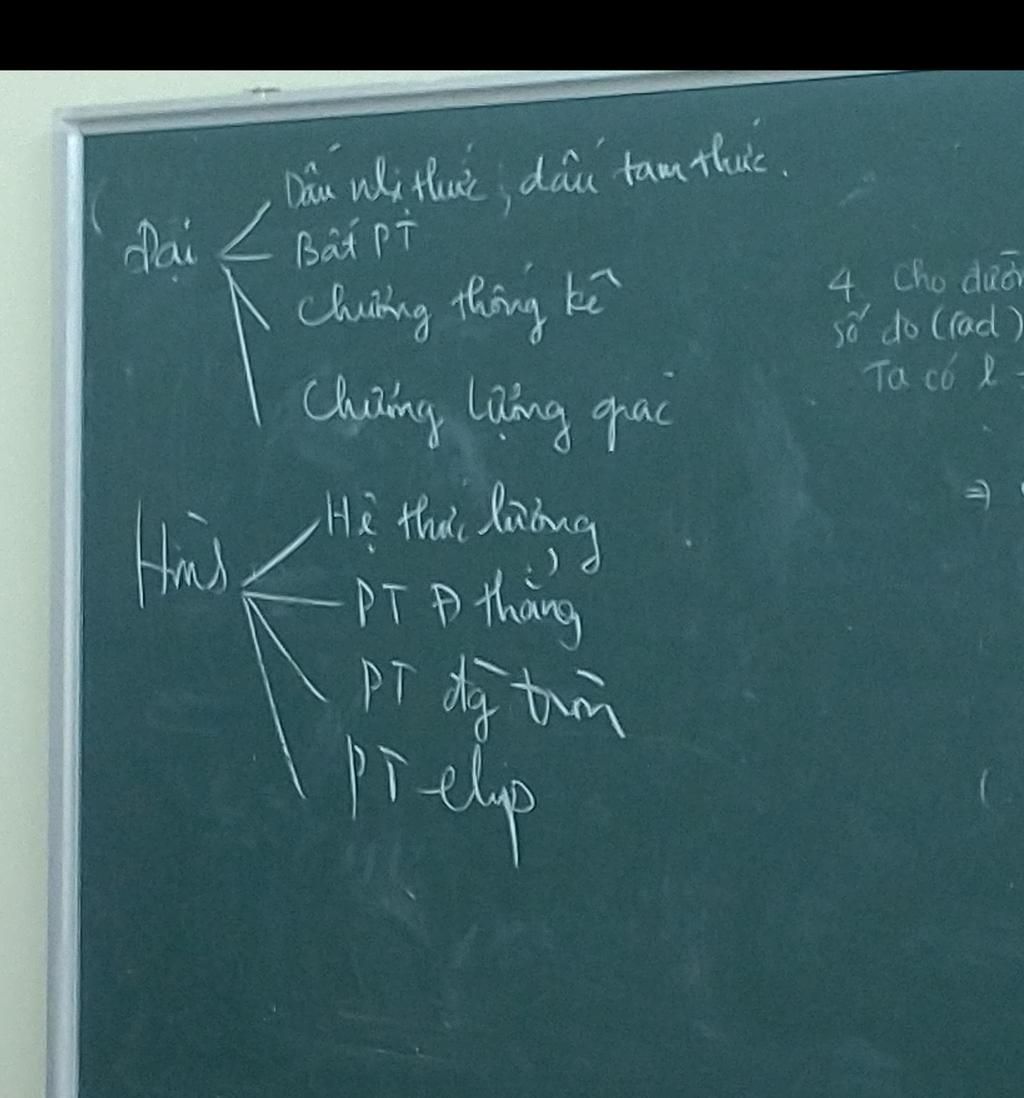 Đại
Dấu nhị thức, dấu tam thức.
Bất PT
Chương thống kê
Chương lượng giác
Hình
Hệ thức lượng
PT Đ thẳng
PT đg tròn
PT elip
4 Cho đườn
số đo (rad)
Ta có l =
⇒
(